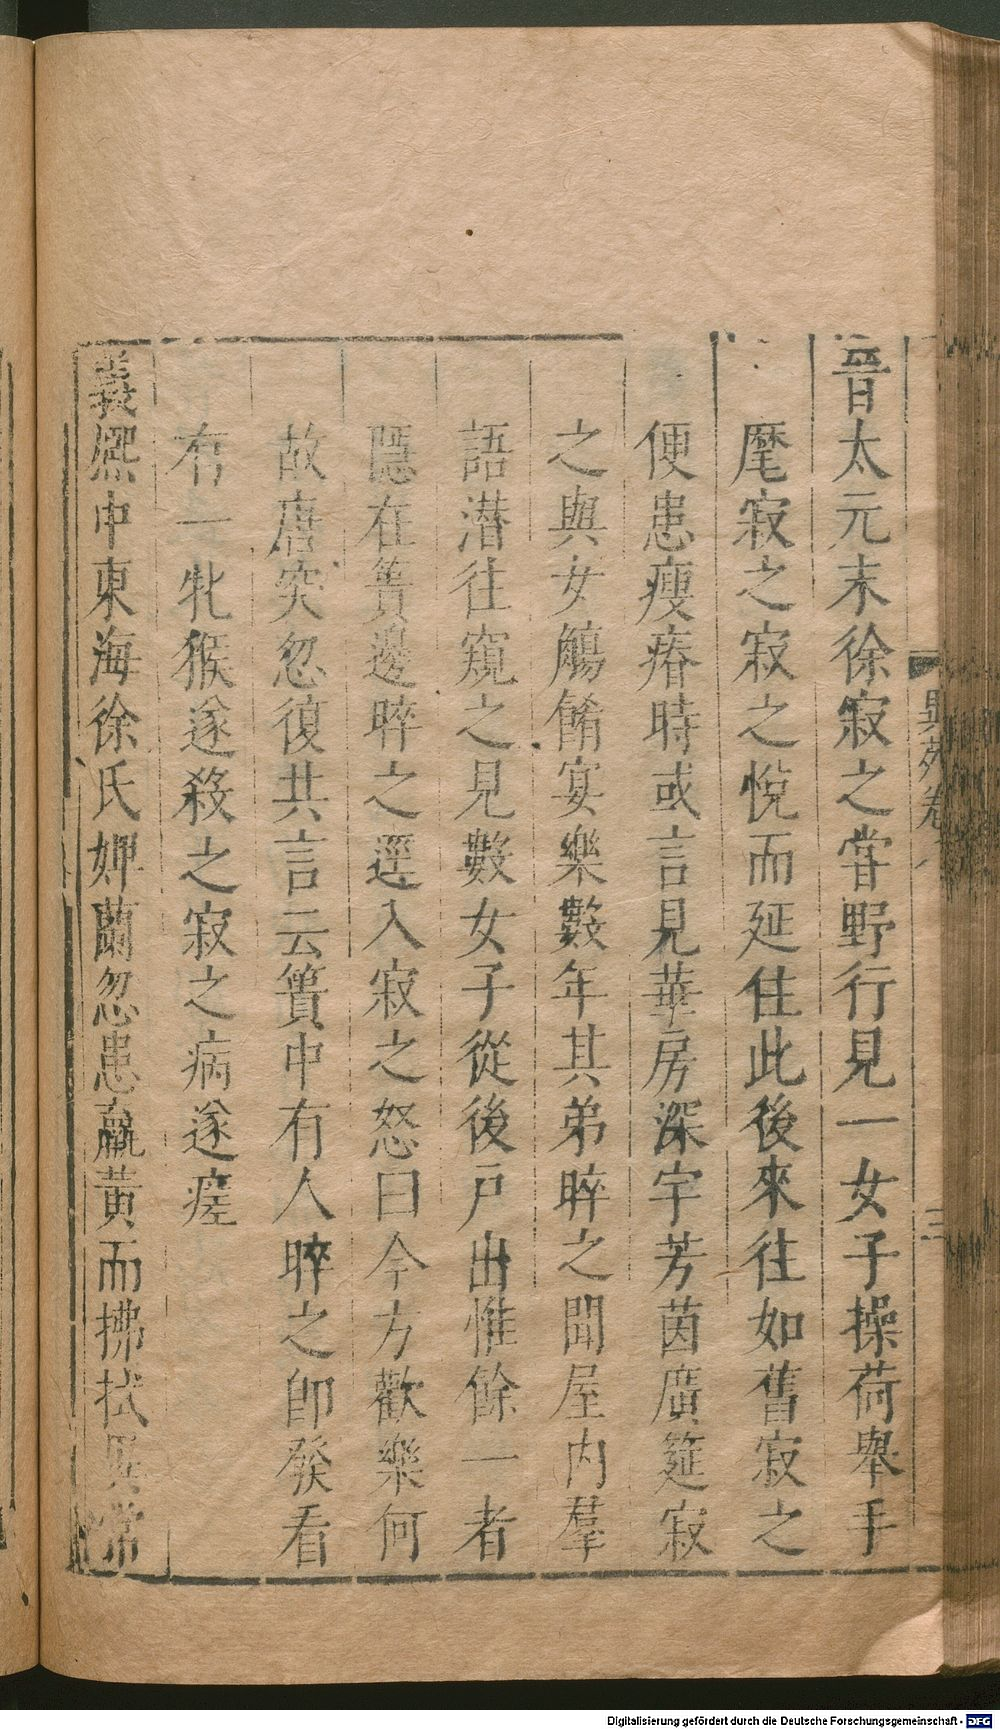 異苑卷八
三
晉太元末徐寂之甞野行見一女子操荷舉手
麾寂之寂之悅而延住此後來往如舊寂之
便患瘦瘠時或言見華房深宇芳茵廣筵寂
之與女觴餚宴樂數年其弟晬之聞屋内羣
語潛往窺之見數女子從後戸出惟餘一者
隱在簣邊晬之逕入寂之怒曰今方歡樂何
故唐突忽復共言云簣中有人晬之卽發看
有一牝猴遂殺之寂之病遂瘥
義熈中東海徐氏婢蘭忽患羸黃而拂拭異常
Digitalisierung gefördert durch die Deutsche Forschungsgemeinschaft - DFG